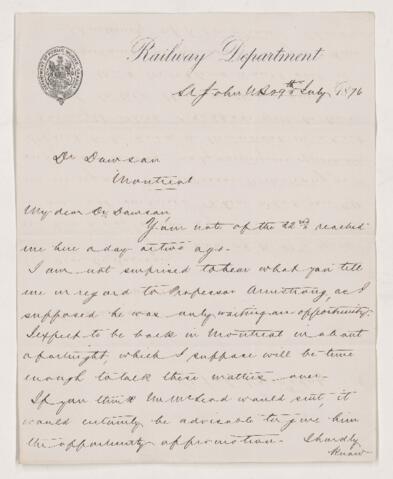 Railway Department
St John NB 29th July 1876
Dr Dawson
Montreal
My dear Dr Dawson,
Your note of the 22nd reached
me here a day or two ago.
I am not surprised to hear what you tell
me in regard to Professor Armstrong, as I
supposed he was only waiting an opportunity.
I expect to be back in Montreal in about
a fortnight, which I suppose will be time
enough to talk these matters over.
If you think Mr McLeod would suit, it
would certainly be advisable to give him
the opportunity of promotion. I hardly
know